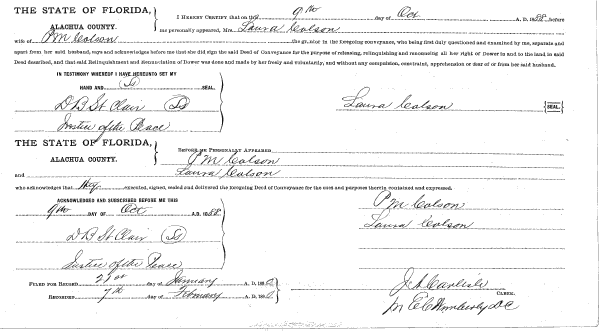 THE STATE OF FLORIDA, I HEREBY CERTIFY that on the 9th day of Oct A. D. 1888 before
ALACHUA COUNTY. me personally appeared, Mrs. Laura Colson
wife of P M Colson the grantor in the foregoing conveyance, who being first duly questioned and examined by me, separate and
apart from her said husband, says and acknowledges before me that she did sign the said Deed of Conveyance for the purpose of releasing, relinquishing and renouncing all her right of Dower in and to the land in said
Deed described, and that said Relinquishment and Renunciation of Dower was done and made by her freely and voluntarily, and without any compulsion, constraint, apprehension or fear of or from her said husband.
IN TESTIMONY WHEREOF I HAVE HEREUNTO SET MY
HAND AND SEAL.
D B St Clair Laura Colson SEAL.
Justice of the Peace
THE STATE OF FLORIDA, BEFORE ME PERSONALLY APPEARED
ALACHUA COUNTY. P M Colson
and Laura Colson
who acknowledges that they executed, signed, sealed and delivered the foregoing Deed of Conveyance for the uses and purposes therein contained and expressed.
ACKNOWLEDGED AND SUBSCRIBED BEFORE ME THIS P M Colson
9th DAY OF Oct A.D. 1888. Laura Colson
D B St Clair
Justice of the Peace
FILED FOR RECORD 21st day of January A. D. 188
RECORDED 7th day of February A. D. 188
J A Carlisle
CLERK.
Wimberly DC